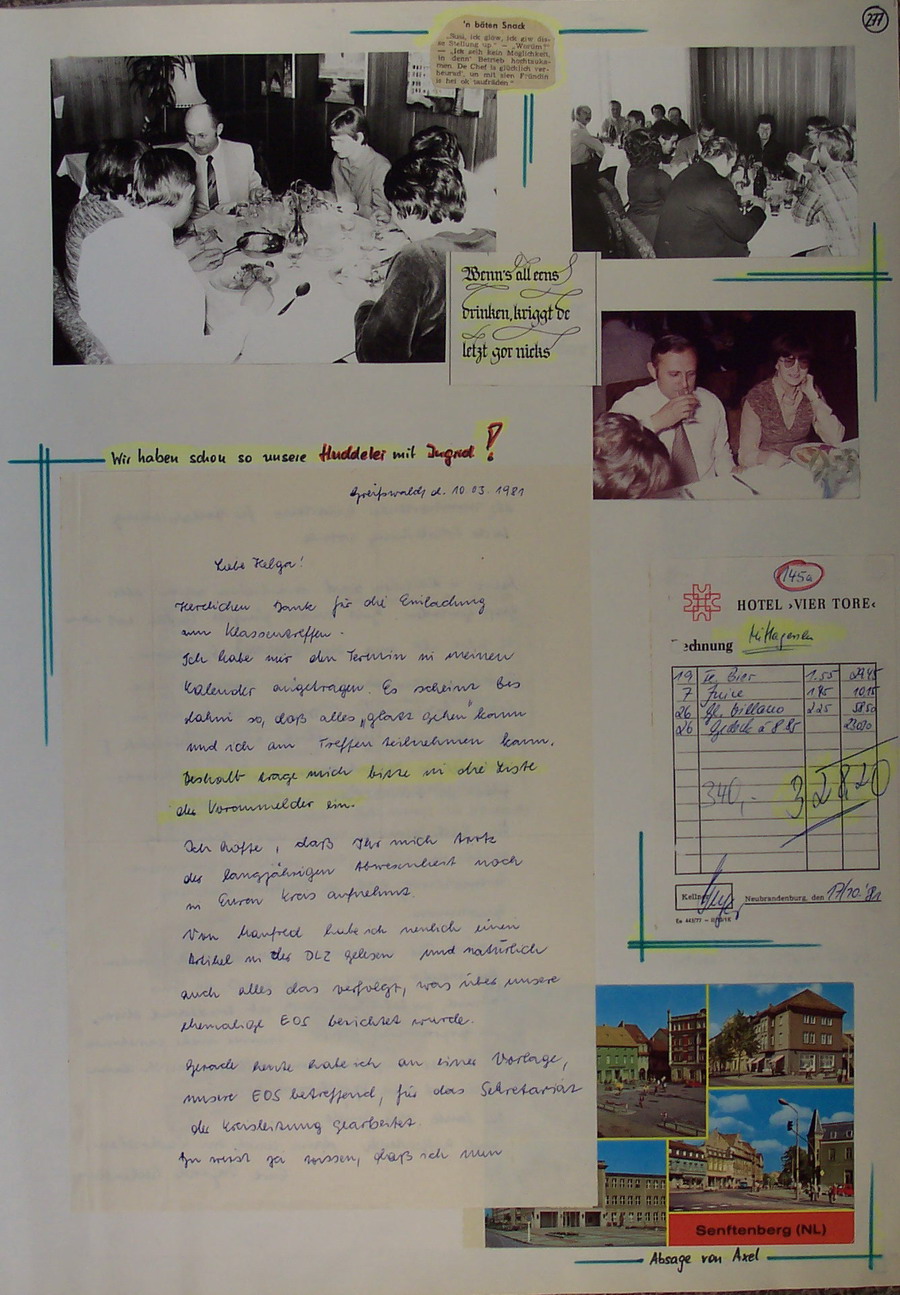 277
'n bäten Snack
„Susi, ick glöw, ick giw die-
se Stellung up." — „Worüm?"
— „Ick seih kein Möglichkeit,
in denn' Betrieb hochtaukа-
men. De Chef is glücklich ver-
heurat', un mit sien Fründin
is hei ok taufräden"
Wenn's all eens
drinken, kriggt de
letzt gor nicks
Wir haben schon so unsere Huddelei mit Ingrid!
Greifswald, d. 10.03.1981
Liebe Helga!
Herzlichen Dank für die Einladung
zum Klassentreffen.
Ich habe mir den Termin in meinen
Kalender eingetragen. Es scheint bis
dahin so, daß alles „glatt gehen" kann
und ich am Treffen teilnehmen kann.
Deshalb trage mich bitte in die Liste
der Voranmelder ein.
Ich hoffe, daß Ihr mich trotz
der langjährigen Abwesenheit noch
in Euren Kreis aufnehmt.
Von Manfred habe ich neulich einen
Artikel in der DLZ gelesen und natürlich
auch alles das verfolgt, was über unsere
ehemalige EOS berichtet wurde.
Gerade heute habe ich an einer Vorlage,
unsere EOS betreffend, für das Sekretariat
der Kreisleitung gearbeitet.
Du mußt ja wissen, daß ich nun
145a
HOTEL ›VIER TORE‹
echnung Mittagessen
19 Bier 1.55 29.45
7 Juice 1.45 10.15
26 2.25 58.50
26 Gedeck à 8.85 230.10
340,- 328,20
Kellner
Neubrandenburg, den 17/10.'81
Senftenberg (NL)
Absage von Axel